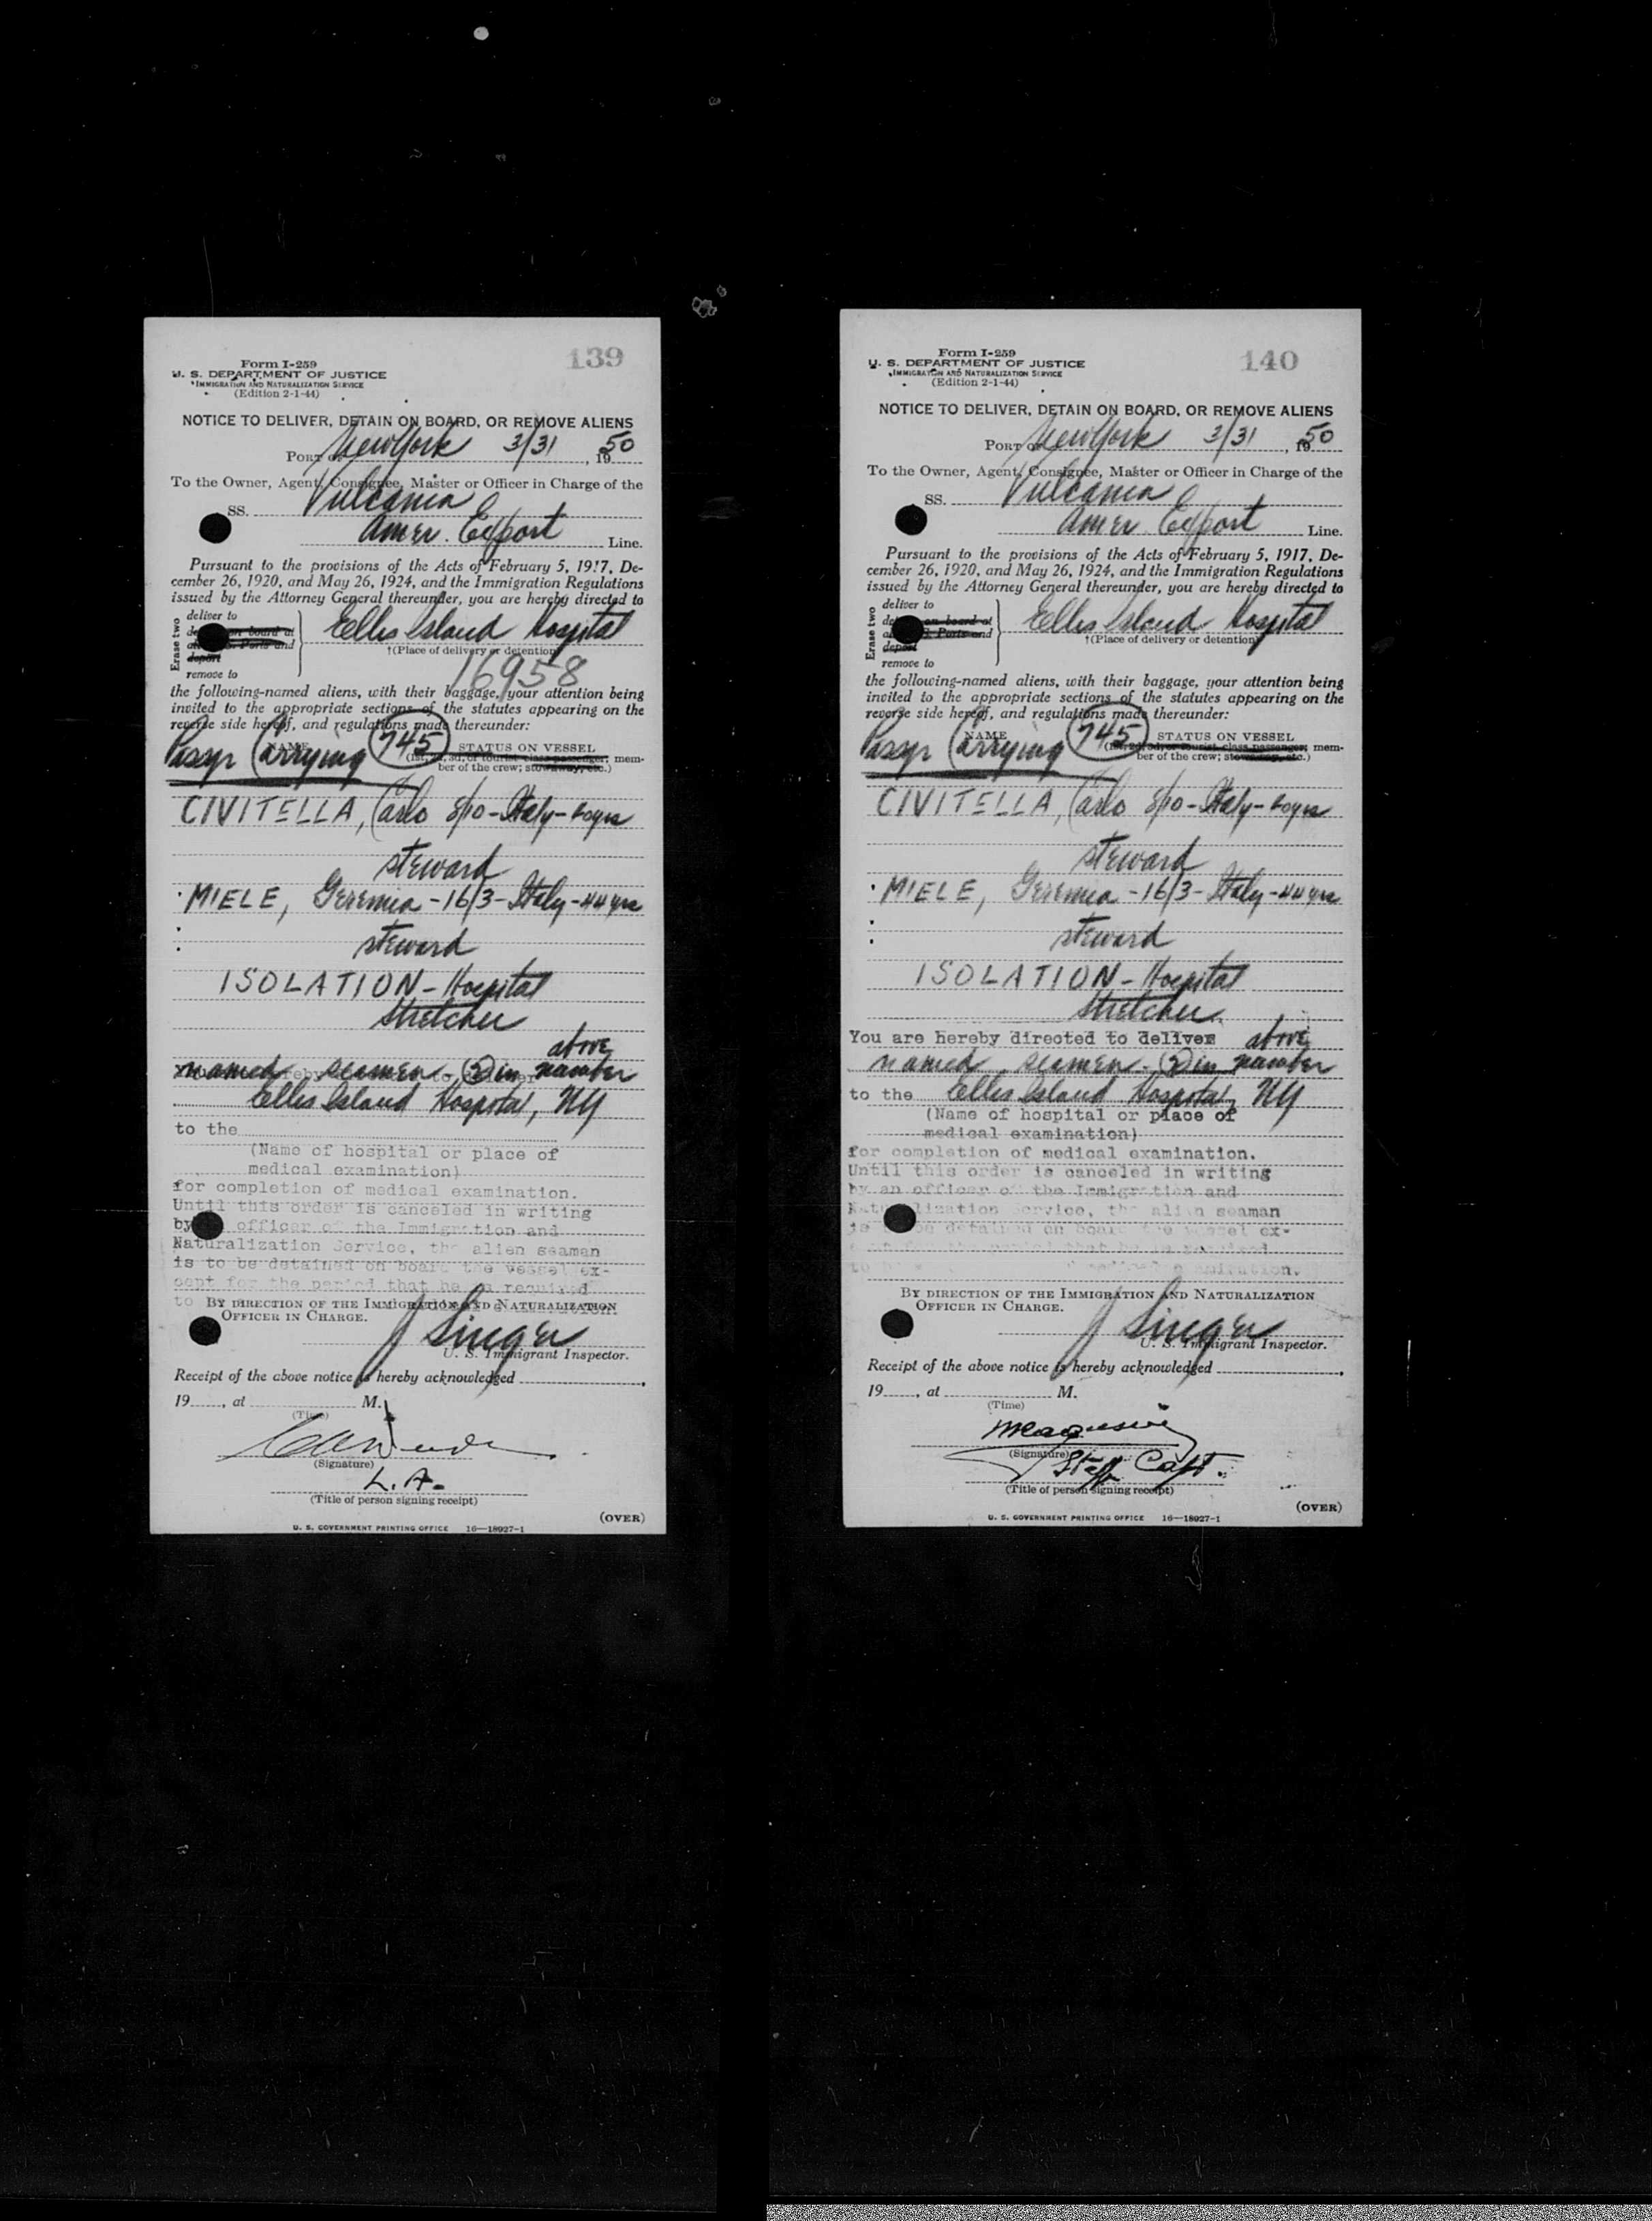 139
Form I-259
U. S. DEPARTMENT OF JUSTICE
IMMIGRATION AND NATURALIZATION SERVICE
(Edition 2-1-44)
NOTICE TO DELIVER, DETAIN ON BOARD, OR REMOVE ALIENS
PORT OF New York 3/31, 1950
To the Owner, Agent, Consignee, Master or Officer in Charge of the
SS. Vulcania
Amer. Export Line.
Pursuant to the provisions of the Acts of February 5, 1917, De-
cember 26, 1920, and May 26, 1924, and the Immigration Regulations
issued by the Attorney General thereunder, you are hereby directed to
Erase two
deliver to
on board at
Ports and
deport
remove to
Ellis Island Hospital
†(Place of delivery or detention)
16958
the following-named aliens, with their baggage, your attention being
invited to the appropriate sections of the statutes appearing on the
reverse side hereof, and regulations made thereunder:
Passgr Carrying 745
NAME STATUS ON VESSEL
(1st, 2d, 3d, or tourist-class passenger; mem-
ber of the crew; stowaway, etc.)
CIVITELLA, Carlo 8/10-Italy-
steward
MIELE, Geremia-16/3-Italy-44yrs
steward
ISOLATION-Hospital
Stretcher
above
named seamen-(2) in number
Ellis Island Hospital, NY
to the
(Name of hospital or place of
medical examination)
for completion of medical examination.
Until this order is canceled in writing
by officer of the Immigration and
Naturalization Service, the alien seaman
is to be detained on board the vessel ex-
cept for the period that he is required
to
BY DIRECTION OF THE IMMIGRATION AND NATURALIZATION
OFFICER IN CHARGE.
J Singer
U. S. Immigrant Inspector.
Receipt of the above notice is hereby acknowledged
19 , at M.
(Time)
(Signature)
L.A.
(Title of person signing receipt)
(OVER)
U. S. GOVERNMENT PRINTING OFFICE 16—18927-1
140
Form I-259
U. S. DEPARTMENT OF JUSTICE
IMMIGRATION AND NATURALIZATION SERVICE
(Edition 2-1-44)
NOTICE TO DELIVER, DETAIN ON BOARD, OR REMOVE ALIENS
PORT OF New York 3/31, 1950
To the Owner, Agent, Consignee, Master or Officer in Charge of the
SS. Vulcania
Amer. Export Line.
Pursuant to the provisions of the Acts of February 5, 1917, De-
cember 26, 1920, and May 26, 1924, and the Immigration Regulations
issued by the Attorney General thereunder, you are hereby directed to
Erase two
deliver to
on board at
Ports and
deport
remove to
Ellis Island Hospital
†(Place of delivery or detention)
the following-named aliens, with their baggage, your attention being
invited to the appropriate sections of the statutes appearing on the
reverse side hereof, and regulations made thereunder:
Passgr Carrying 745
NAME STATUS ON VESSEL
(1st, 2d, 3d, or tourist-class passenger; mem-
ber of the crew; stowaway, etc.)
CIVITELLA, Carlo 8/10-Italy-
steward
MIELE, Geremia-16/3-Italy-44yrs
steward
ISOLATION-Hospital
Stretcher
You are hereby directed to deliver above
named seamen-(2) in number
to the Ellis Island Hospital, NY
(Name of hospital or place of
medical examination)
for completion of medical examination.
Until this order is canceled in writing
by an officer of the Immigration and
Naturalization Service, the alien seaman
is be detained on board the vessel ex-
cept for the period that he is required
to examination.
BY DIRECTION OF THE IMMIGRATION AND NATURALIZATION
OFFICER IN CHARGE.
J Singer
U. S. Immigrant Inspector.
Receipt of the above notice is hereby acknowledged
19 , at M.
(Time)
(Signature)
Staff Capt.
(Title of person signing receipt)
(OVER)
U. S. GOVERNMENT PRINTING OFFICE 16—18927-1